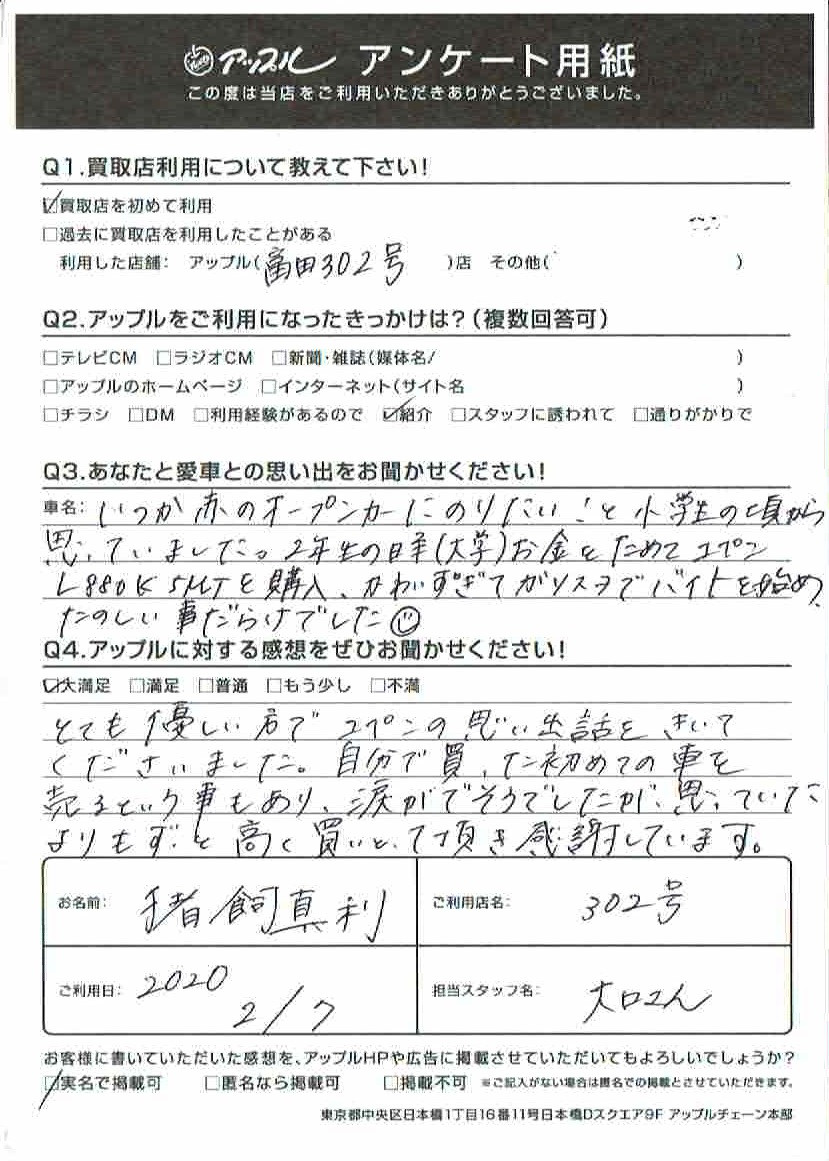 アップル アンケート用紙
この度は当店をご利用いただきありがとうございました。
Q1.買取店利用について教えて下さい!
☑買取店を初めて利用
□過去に買取店を利用したことがある
利用した店舗: アップル(富田302号 )店 その他( )
Q2.アップルをご利用になったきっかけは?(複数回答可)
□テレビCM □ラジオCM □新聞・雑誌(媒体名/ )
□アップルのホームページ □インターネット(サイト名 )
□チラシ □DM □利用経験があるので ☑紹介 □スタッフに誘われて □通りがかりで
Q3.あなたと愛車との思い出をお聞かせください!
車名: いつか赤のオープンカーにのりたい!と小学生の頃から
思っていました。2年生の時(大学)お金をためてコペン
L880K 5MTを購入、かわいすぎてガソスタでバイトを始め、
たのしい事だらけでした☺
Q4.アップルに対する感想をぜひお聞かせください!
☑大満足 □満足 □普通 □もう少し □不満
とても優しい方でコペンの思い出話をきいて
くださいました。自分で買った初めての車を
売るという事もあり、涙がでそうでしたが、思っていた
よりもずっと高く買いとって頂き感謝しています。
お名前: 猪飼真利
ご利用店名: 302号
ご利用日: 2020 2/7
担当スタッフ名: 大口さん
お客様に書いていただいた感想を、アップルHPや広告に掲載させていただいてもよろしいでしょうか?
☑実名で掲載可 □匿名なら掲載可 □掲載不可 ※ご記入がない場合は匿名での掲載とさせていただきます。
東京都中央区日本橋1丁目16番11号日本橋Dスクエア9F アップルチェーン本部